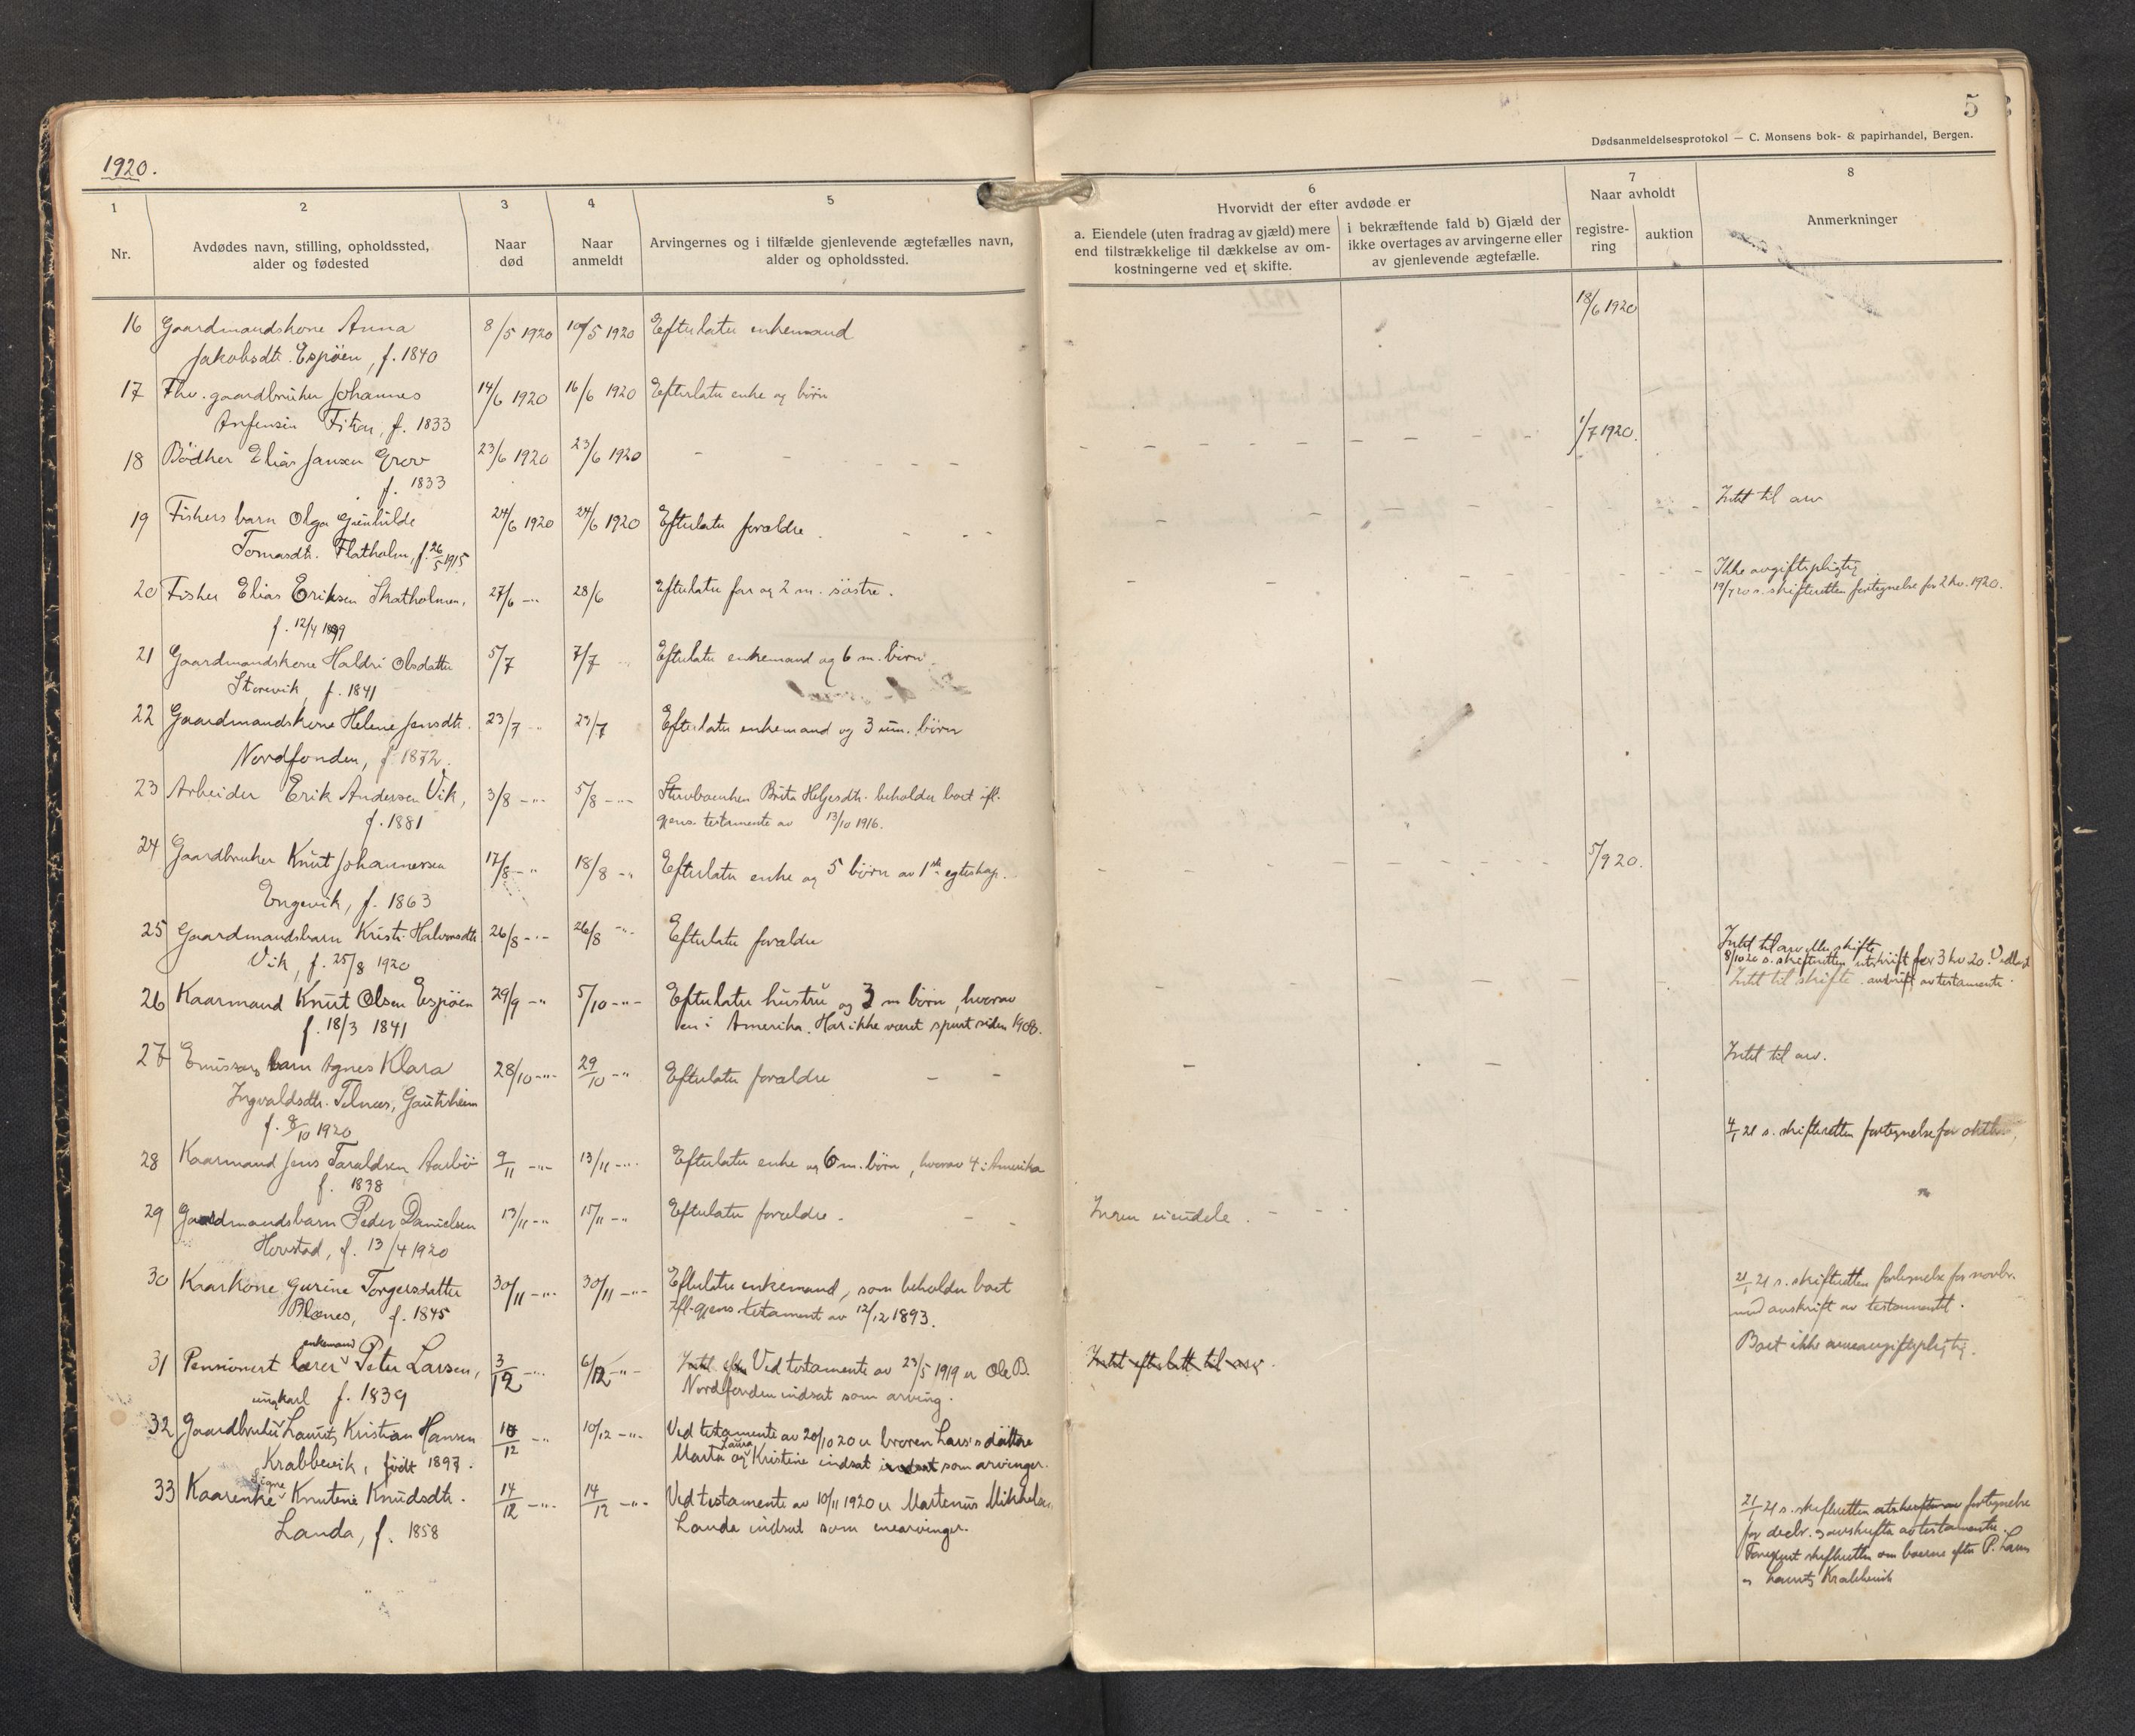 5
Dødsanmeldelsesprotokol — C. Monsens bok- & papirhandel, Bergen.
1920.
1
Nr.
2
Avdødes navn, stilling, opholdssted,
alder og fødested
3
Naar
død
4
Naar
anmeldt
5
Arvingernes og i tilfælde gjenlevende ægtefælles navn,
alder og opholdssted.
6
Hvorvidt der efter avdøde er
a. Eiendele (uten fradrag av gjæld) mere
end tilstrækkelige til dækkelse av om-
kostningerne ved et skifte.
i bekræftende fald b) Gjæld der
ikke overtages av arvingerne eller
av gjenlevende ægtefælle.
7
Naar avholdt
registre-
ring
auktion
8
Anmerkninger
16 Gaardmandskone Anna 8/5 1920 10/5 1920 Efterlater enkemand 18/6 1920
Jakobsdtr. Espöen, f. 1840
17 Fhv. gaardbruker Johannes 14/6 1920 16/6 1920 Efterlater enke og börn
Anfensen Fitjar, f. 1833 1/7 1920.
18 Bödker Elias Jansen Grov 23/6 1920 23/6 1920 - - - - -
f. 1833
Intet til arv
19 Fishers barn Olga Gunhilde 24/6 1920 24/6 1920 Efterlater forældre.
Tomasdtr. Flatholm, f. 26/5 1915
Ikke avgiftspligtig
20 Fisker Elias Eriksen Skatholmen, 27/6 -"- 28/6 Efterlater far og 2 m. söstre. 19/7 20 s. skifteretten fortegnelse for 2 kv. 1920.
f. 12/4 1899
21 Gaardmandskone Haldri Olsdatter 5/7 7/7 Efterlater enkemand og 6 m. börn.
Storevik, f. 1841
22 Gaardmandskone Helene Jensdtr. 23/7 23/7 Efterlater enkemand og 3 um. börn
Nordfonden, f. 1872.
23 Arbeider Erik Andersen Vik, 3/8 -"- 5/8 -"- Stervboenken Brita Helgesdtr. beholder boet ifl.
f. 1881 gjens. testamente av 13/10 1916.
24 Gaardbruker Knut Johannessen 17/8 -"- 18/8 -"- Efterlater enke og 5 börn av 1ste egteskap. 5/9 20.
Engevik, f. 1863
25 Gaardmandsbarn Kristi Halvorsdtr. 26/8 -"- 26/8 -"- Efterlater forældre
Vik, f. 25/8 1920
Intet til arv eller skifte
8/10 20 s. skifteretten utskrift for 3 kv 20. Vedlagt
Intet til skifte. avskrift av testamente.
26 Kaarmand Knut Olsen Espöen 29/9 -"- 5/10 -"- Efterlater hustru og 3 m börn, hvorav
f. 18/3 1841 en i Amerika. Har ikke været spurt siden 1908.
27 Emissærs barn Agnes Klara 28/10 -"- 29/10 -"- Efterlater forældre - - Intet til arv.
Ingvaldsdtr. Telnæs, Gautsheim
f. 8/10 1920
4/1 21 s. skifteretten fortegnelse for oktbr,
28 Kaarmand Jens Taraldsen Aarbö 9/11 -"- 13/11 -"- Efterlater enke og 6 m. börn, hvorav 4 i Amerika
f. 1838
29 Gaardmandsbarn Peder Danielsen 13/11 -"- 15/11 -"- Efterlater forældre. - - Ingen eiendele.
Hovstad, f. 13/4 1920
30 Kaarkone Gurine Torgersdatter 30/11 -"- 30/11 -"- Efterlater enkemand, som beholder boet 21/1 21 s. skifteretten fortegnelse for novbr.
Blænes, f. 1845 ifl. gjens. testament av 12/12 1893. med avskrift av testamentet.
enkemand
31 Pensionert lærer Peter Larsen, 3/12 -"- 6/12 -"- Intet efter Ved testamente av 23/5 1919 er Ole B. Intet efterlatt til arv. Boet ikke arveavgiftspligtig.
ungkarl f. 1839 Nordfonden indsat som arving.
32 Gaardbruker Lauritz Kristian Hansen 10/12 -"- 10/12 -"- Ved testamente av 20/10 20 er broren Lars's döttre
Krabbevik, födt 1897. Marta Laura og Kristine indsat indsat som arvinger.
Signe
33 Kaarenke Knutene Knudsdtr. 14/12 -"- 14/12 -"- Ved testamente av 10/11 1920 er Martenus Mikkelsen
Landa, f. 1858 Landa indsat som enearvinger.
21/1 21 s. skifteretten utskrift av fortegnelse
for decbr. og avskrifter av testamenter.
Forespurt skifteretten om boerne efter P. Larsen
og Lauritz Krabbevik